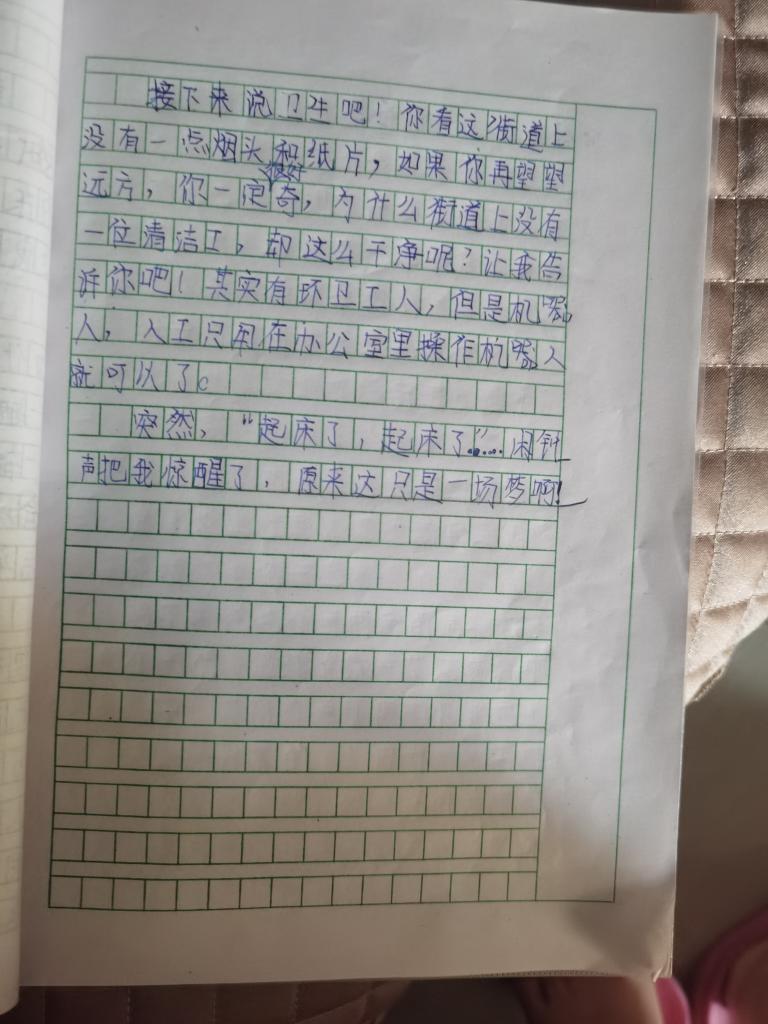 接下来说卫生吧！你看这街道上
没有一点烟头和纸片，如果你再望望
远方，你一定很好奇，为什么街道上没有
一位清洁工，却这么干净呢？让我告
诉你吧！其实有环卫工人，但是机器
人，人工只用在办公室里操作机器人
就可以了。
突然，“起床了，起床了”……闹钟
声把我惊醒了，原来这只是一场梦啊！